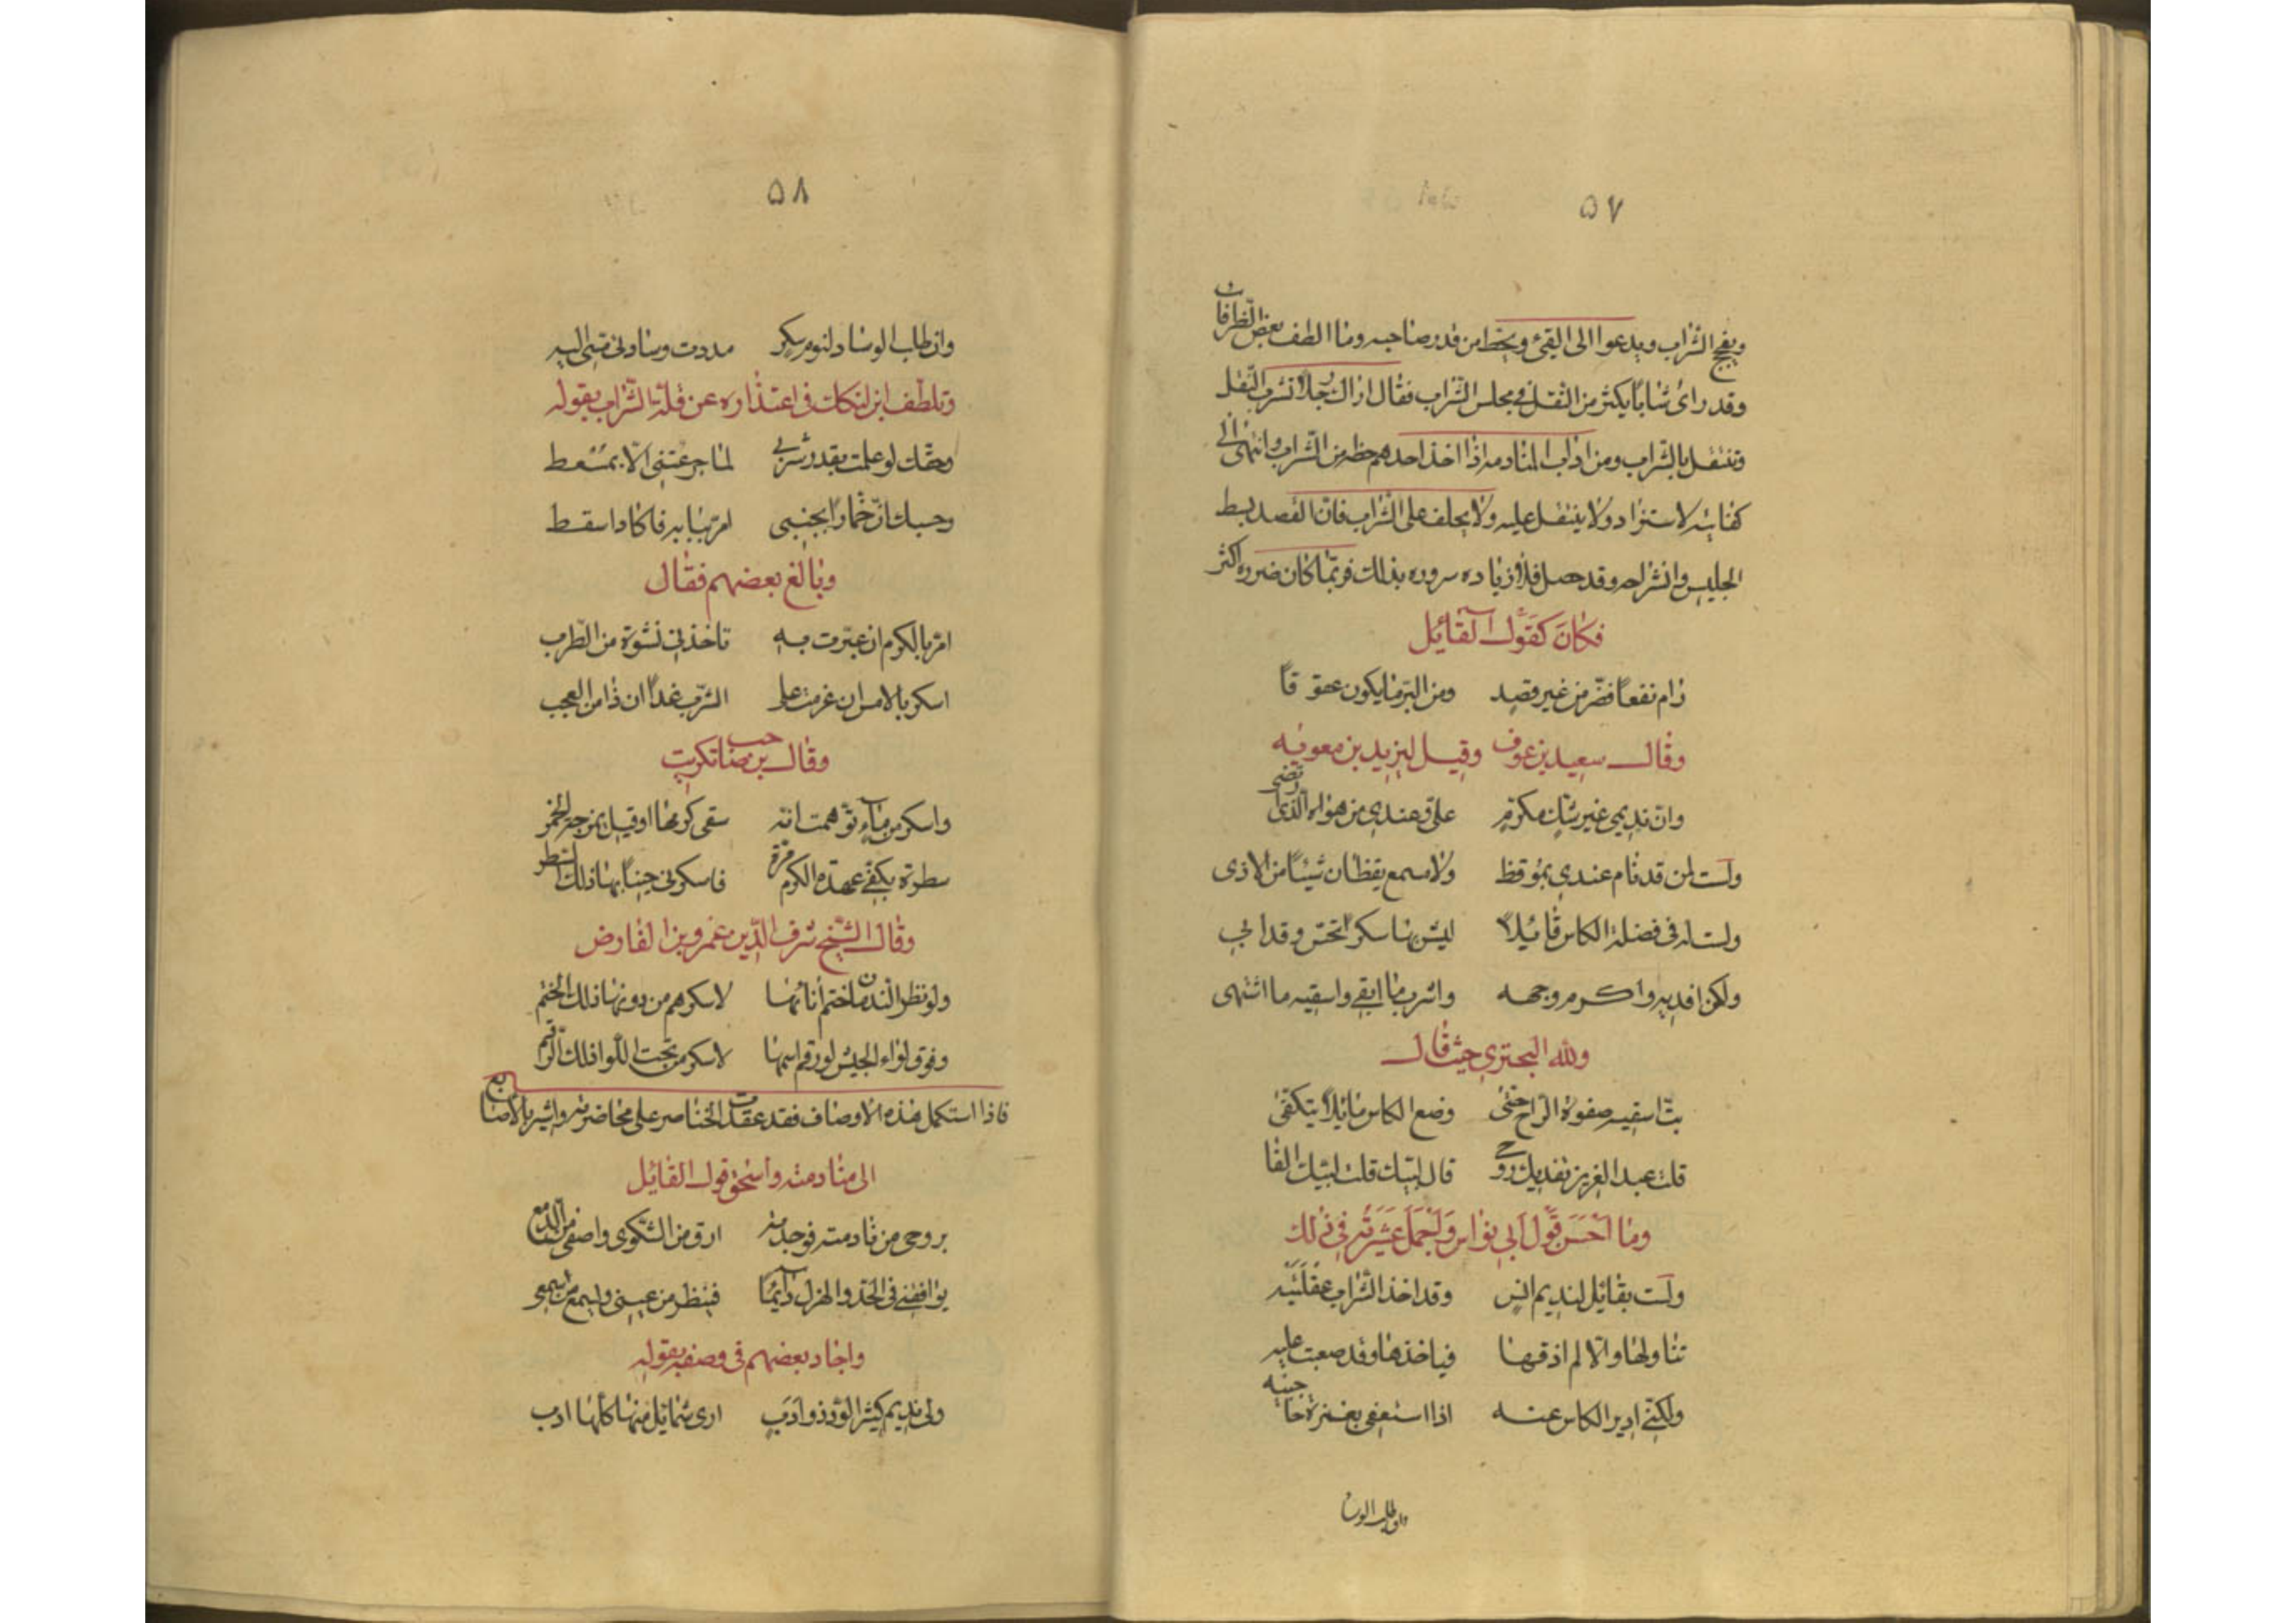 ٥٧
ويقبح الشراب ويدعوا الى القئ ويحط من قدر صاحبه وما الطف بعض الظرافات
وقد راى شاباً يكثر من النقل فى مجلس الشراب فقال اراك رجلاً تشرب النقل
وتتنقل بالشراب ومن اداب المنادمه اذا اخذ احدهم حظه من الشراب وانتهى الى
كفايته لا يستزاد ولا يتنقل عليه ولا يحلف على الشراب فان القصد بسط
الجليس وانشراحه وقد حصل فلا زياده سروره بذلك فربما كان ضروه اكثر
فكان كقول القائل
رام نفعاً فضر من غير قصد ومن البر ما يكون عقوقاً
وقال سعيد بن عوف وقيل ليزيد بن معويه
وان نديمى غير شك مكرم على وعندى من هواه الذى رتضى
ولست لمن قد نام عندى بموقظ ولا مسمع يقظان شيئاً من الاذى
ولست له فى فضلة الكاس قائلا ليشربها سكراً تحس وقد ابى
ولكن افديه واكرم وجهه واشرب ما ابقى واسقيه ما اشتهى
ولله البحترى حيث قال
بت اسقيه صفوة الراح حتى وضع الكاس مائلاً يتكفى
قلت عبد العزيز تفديك روحى قال لبيك قلت لبيك الفا
وما احسن قول ابى نواس واجمل عشرته فى ذلك
ولست بقائل لنديم انس وقد اخذ الشراب عقلتيه
تناولها والا لم اذقها فياخذها وقد صعبت عليه
ولكنى ادير الكاس عنه اذا استعفى بغمزة حاجبيه
وان طلب الوسا
٥٨
وان طلب الوساد لنوم سكر مددت وسادتى منى اليه
وتلطف ابن لنكك فى اعتذاره عن قلة الشراب بقوله
وحقك لو علمت بقدر شربى لما جرعتنى الا بمسعط
وحسبك ان خماراً بجنبى امر ببابه فاكاد اسقط
وبالغ بعضهم فقال
امر بالكرم ان عبرت به تاخذنى نشوة من الطرب
اسكر بالامس ان عزمت على الشرب غداً ان ذا من العجب
وقال بن صاحب تكريت
واسكر من ماء توهمت انه سقى كرمها او قيل يمزج الخمر
سطرة يكفى عهده الكرم مرة فاسكرنى حيناً بها ذلك السطر
وقال الشيخ شرف الدين عمرو بن الفارض
ولو نظر الندمان ختم انائها لاسكرهم من دونها ذلك الختم
وفوق لواء الجيش لو رقم اسمها لاسكر من تحت اللوا ذلك الرقم
فاذا استكمل هذه الاوصاف فقد عقدت الخناصر على محاضرته واشير بالاصابع
الى منادمته واستحق قول القايل
بروحى من نادمته فوجدته ارق من الشكوى واصفى من الدمع
يوافقنى فى الجد والهزل دائماً فينظر من عينى ويسمع من سمعى
واجاد بعضهم فى وصفه بقوله
ولى نديم كثير الود ذو ادب ارى شمائل منها كلها ادب